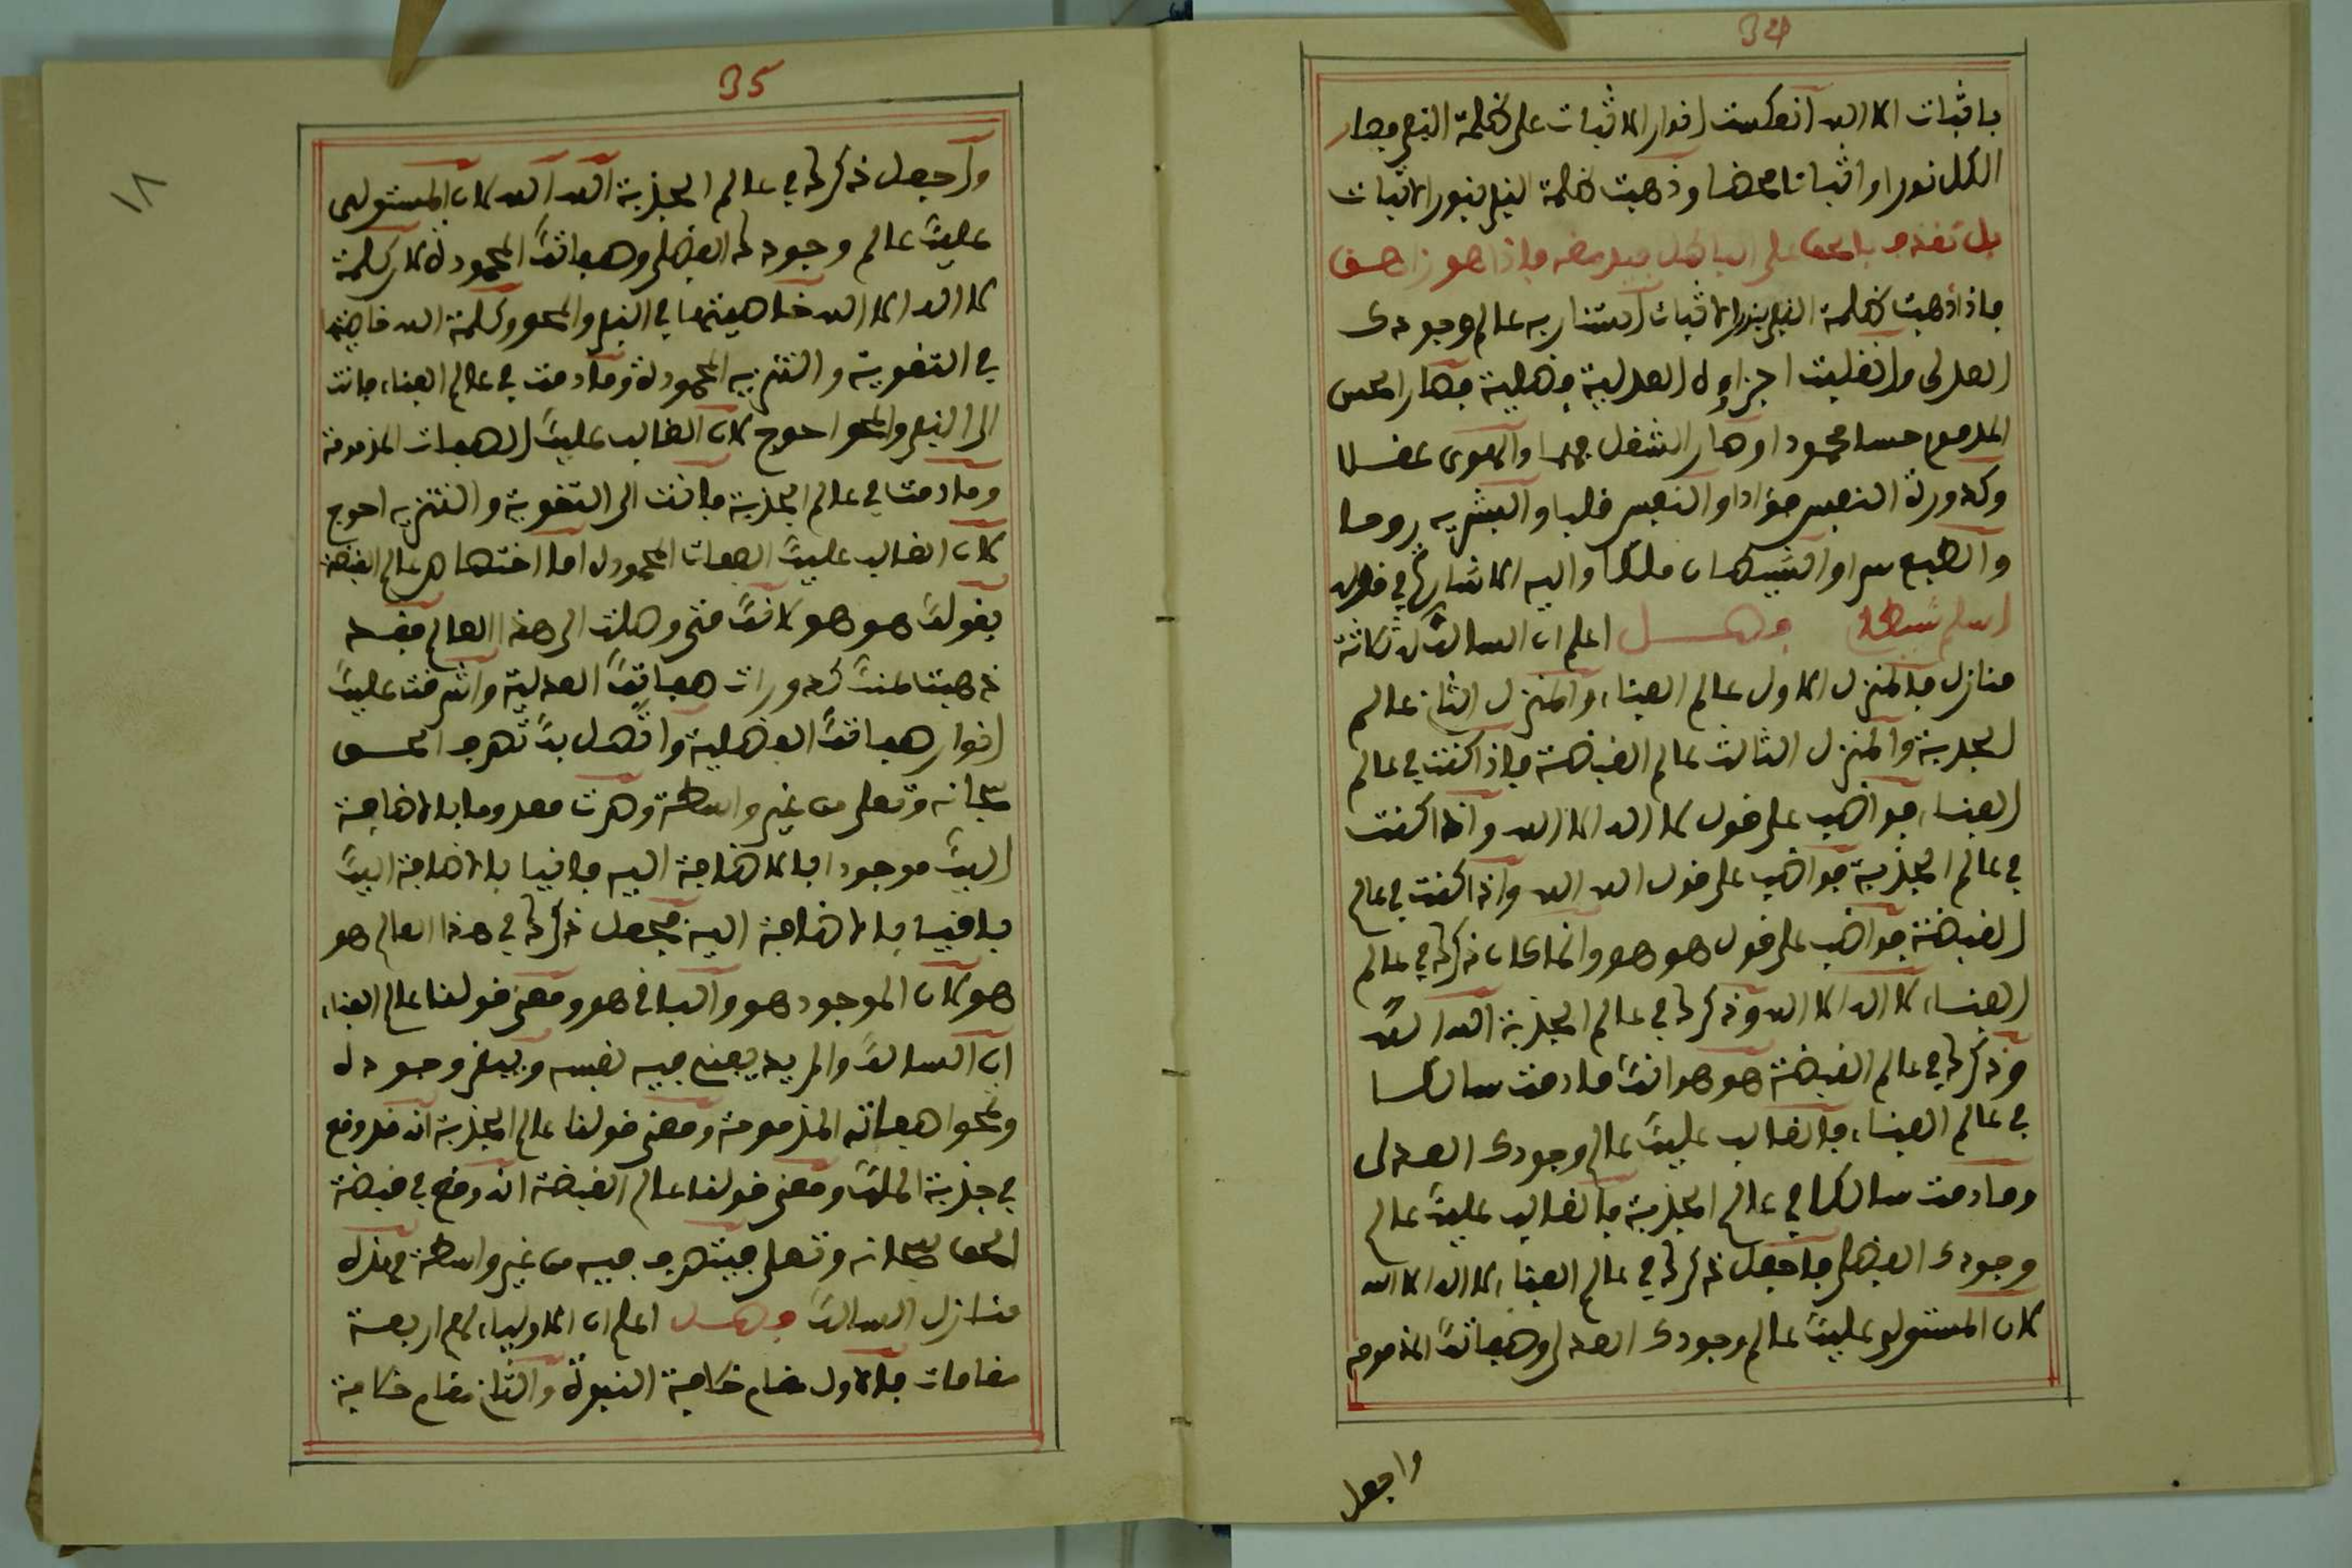 34
باثبات الا الله انعكست انوار الاثبات على ظلمة النفي فصار
الكل نورا واثباتا محضا وذهبت ظلمة النفي بنور الاثبات
بل نقذف بالحق على الباطل فيدمغه فاذا هو زاهق
فاذا ذهبت ظلمة النفي بنور الاثبات استنار به عالم وجودك
العدلي وانقلبت اجزاؤه العدلية فضلية فصار الحس
المذموم حسا محمودا وصار الشغل هما والهوى عقلا
وكدورة النفس فؤادا والنفس قلبا والبشرية روحا
والطبع سرا والشيطان ملكا واليه الاشارة في قوله
اسلم شيطاني فصل اعلم ان السالك له ثلاثة
منازل فالمنزل الاول عالم الفناء والمنزل الثاني عالم
الجذبة والمنزل الثالث عالم القبضة فاذا كنت في عالم
الفناء فواظب على قول لا اله الا الله واذا كنت
في عالم الجذبة فواظب على قول الله الله واذا كنت في عالم
القبضة فواظب على قول هو هو وانما كان ذكرك في عالم
الفناء لا اله الا الله وذكرك في عالم الجذبة الله الله
وذكرك في عالم القبضة هو هو انك ما دمت سالكا
في عالم الفناء فالغالب عليك عالم وجودك العدلي
وما دمت سالكا في عالم الجذبة فالغالب عليك عالم
وجودك الفضلي فاجعل ذكرك في عالم الفناء لا اله الا الله
لان المستولي عليك عالم وجودك العدلي وصفاتك المذمومة
واجعل
35
١٨
واجعل ذكرك في عالم الجذبة الله الله لان المستولي
عليك عالم وجودك الفضلي وصفاتك المحمودة لان كلمة
لا اله الا الله خاصيتها في النفي والمحو وكلمة الله خاصيتها
في التقوية والتنزيه المحمودة وما دمت في عالم الفناء فانت
الى النفي والمحو احوج لان الغالب عليك الصفات المذمومة
وما دمت في عالم الجذبة فانت الى التقوية والتنزيه احوج
لان الغالب عليك الصفات المحمودة اما اختصاص عالم القبضة
بقولك هو هو لانك متى وصلت الى هذا العالم فقد
ذهبت عنك كدورات صفاتك العدلية واشرقت عليك
انوار صفاتك الفضلية واتصل بك تصرف الحق
سبحانه وتعلى من غير واسطة وصرت معدوما بالاضافة
اليك موجودا بالاضافة اليه فانيا بالاضافة اليك
باقيا بالاضافة اليه فيجعل ذكرك في هذا العالم هو
هو لان الموجود هو والباقي هو ومعنى قولنا عالم الفناء
ان السالك والمريد يفني فيه نفسه ويبقي وجوده
ومحوا صفاته المذمومة ومعنى قولنا عالم الجذبة انه قد وقع
في جذبة الملك ومعنى قولنا عالم القبضة انه وقع في قبضة
الحق سبحانه وتعلى فيتصرف فيه من غير واسطة فهذه
منازل السالك فصل اعلم ان الاولياء لهم اربعة
مقامات فالاول مقام خلافة النبوة والثاني مقام خلافة